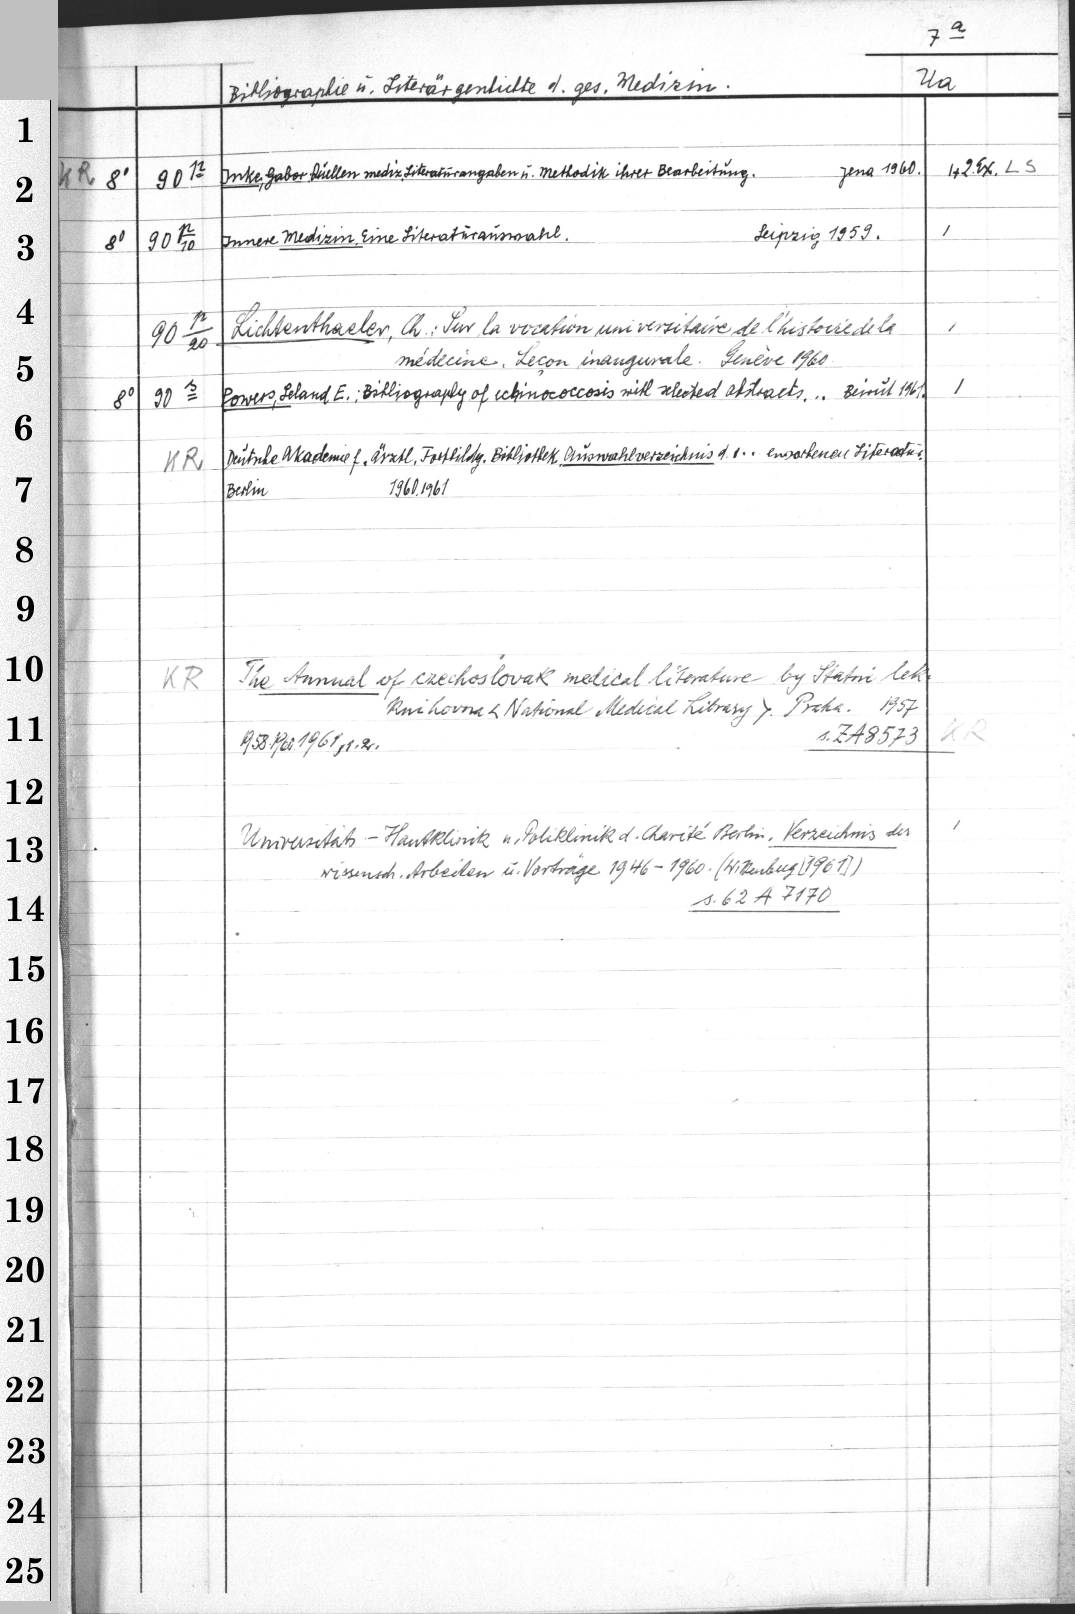 7 a
Bibliographie ü. Literärgeschichte d. ges. Medizin. Ua
1
2 KR 8° 90 n Inke, Gabor Quellen mediz. Literaturangaben ü. Methodik ihrer Bearbeitung. Jena 1960. 1+2. Ex. L S
3 8° 90 n/10 Innere Medizin. Eine Literaturauswahl. Leipzig 1959. 1
4 90 n/20 Lichtenthaeler, Ch.: Sur la vocation universitaire de l'histoire de la 1
5 médecine. Leçon inaugurale. Genève 1960
8° 90 s Powers, Leland E.: Bibliography of echinococcosis with selected abstracts... Beirut 1961. 1
6
KR Deutsche Akademie f. ärztl. Fortbildg. Bibliothek. Auswahlverzeichnis d. ... erworbenen Literatur.
7 Berlin 1960.1961
8
9
10 KR The Annual of czechoslovak medical literature by Státní lek.
Knihovna < National Medical Library >. Praha. 1957
11 1958. 1960 1961,1.2. s. ZA8573 KR
12
13 Universitäts-Hautklinik u. Poliklinik d. Charité Berlin. Verzeichnis der 1
wissensch. Arbeiten ü. Vorträge 1946-1960. (Wittenberg [1961])
14 s. 62 A 7170
15
16
17
18
19
20
21
22
23
24
25